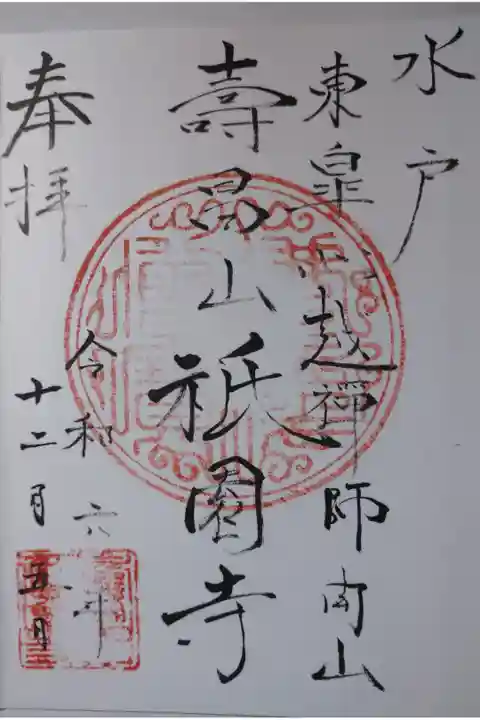 水戸
東皐心越禅師南山
壽昌山祇園寺
令和六年
十二月五日
奉拝